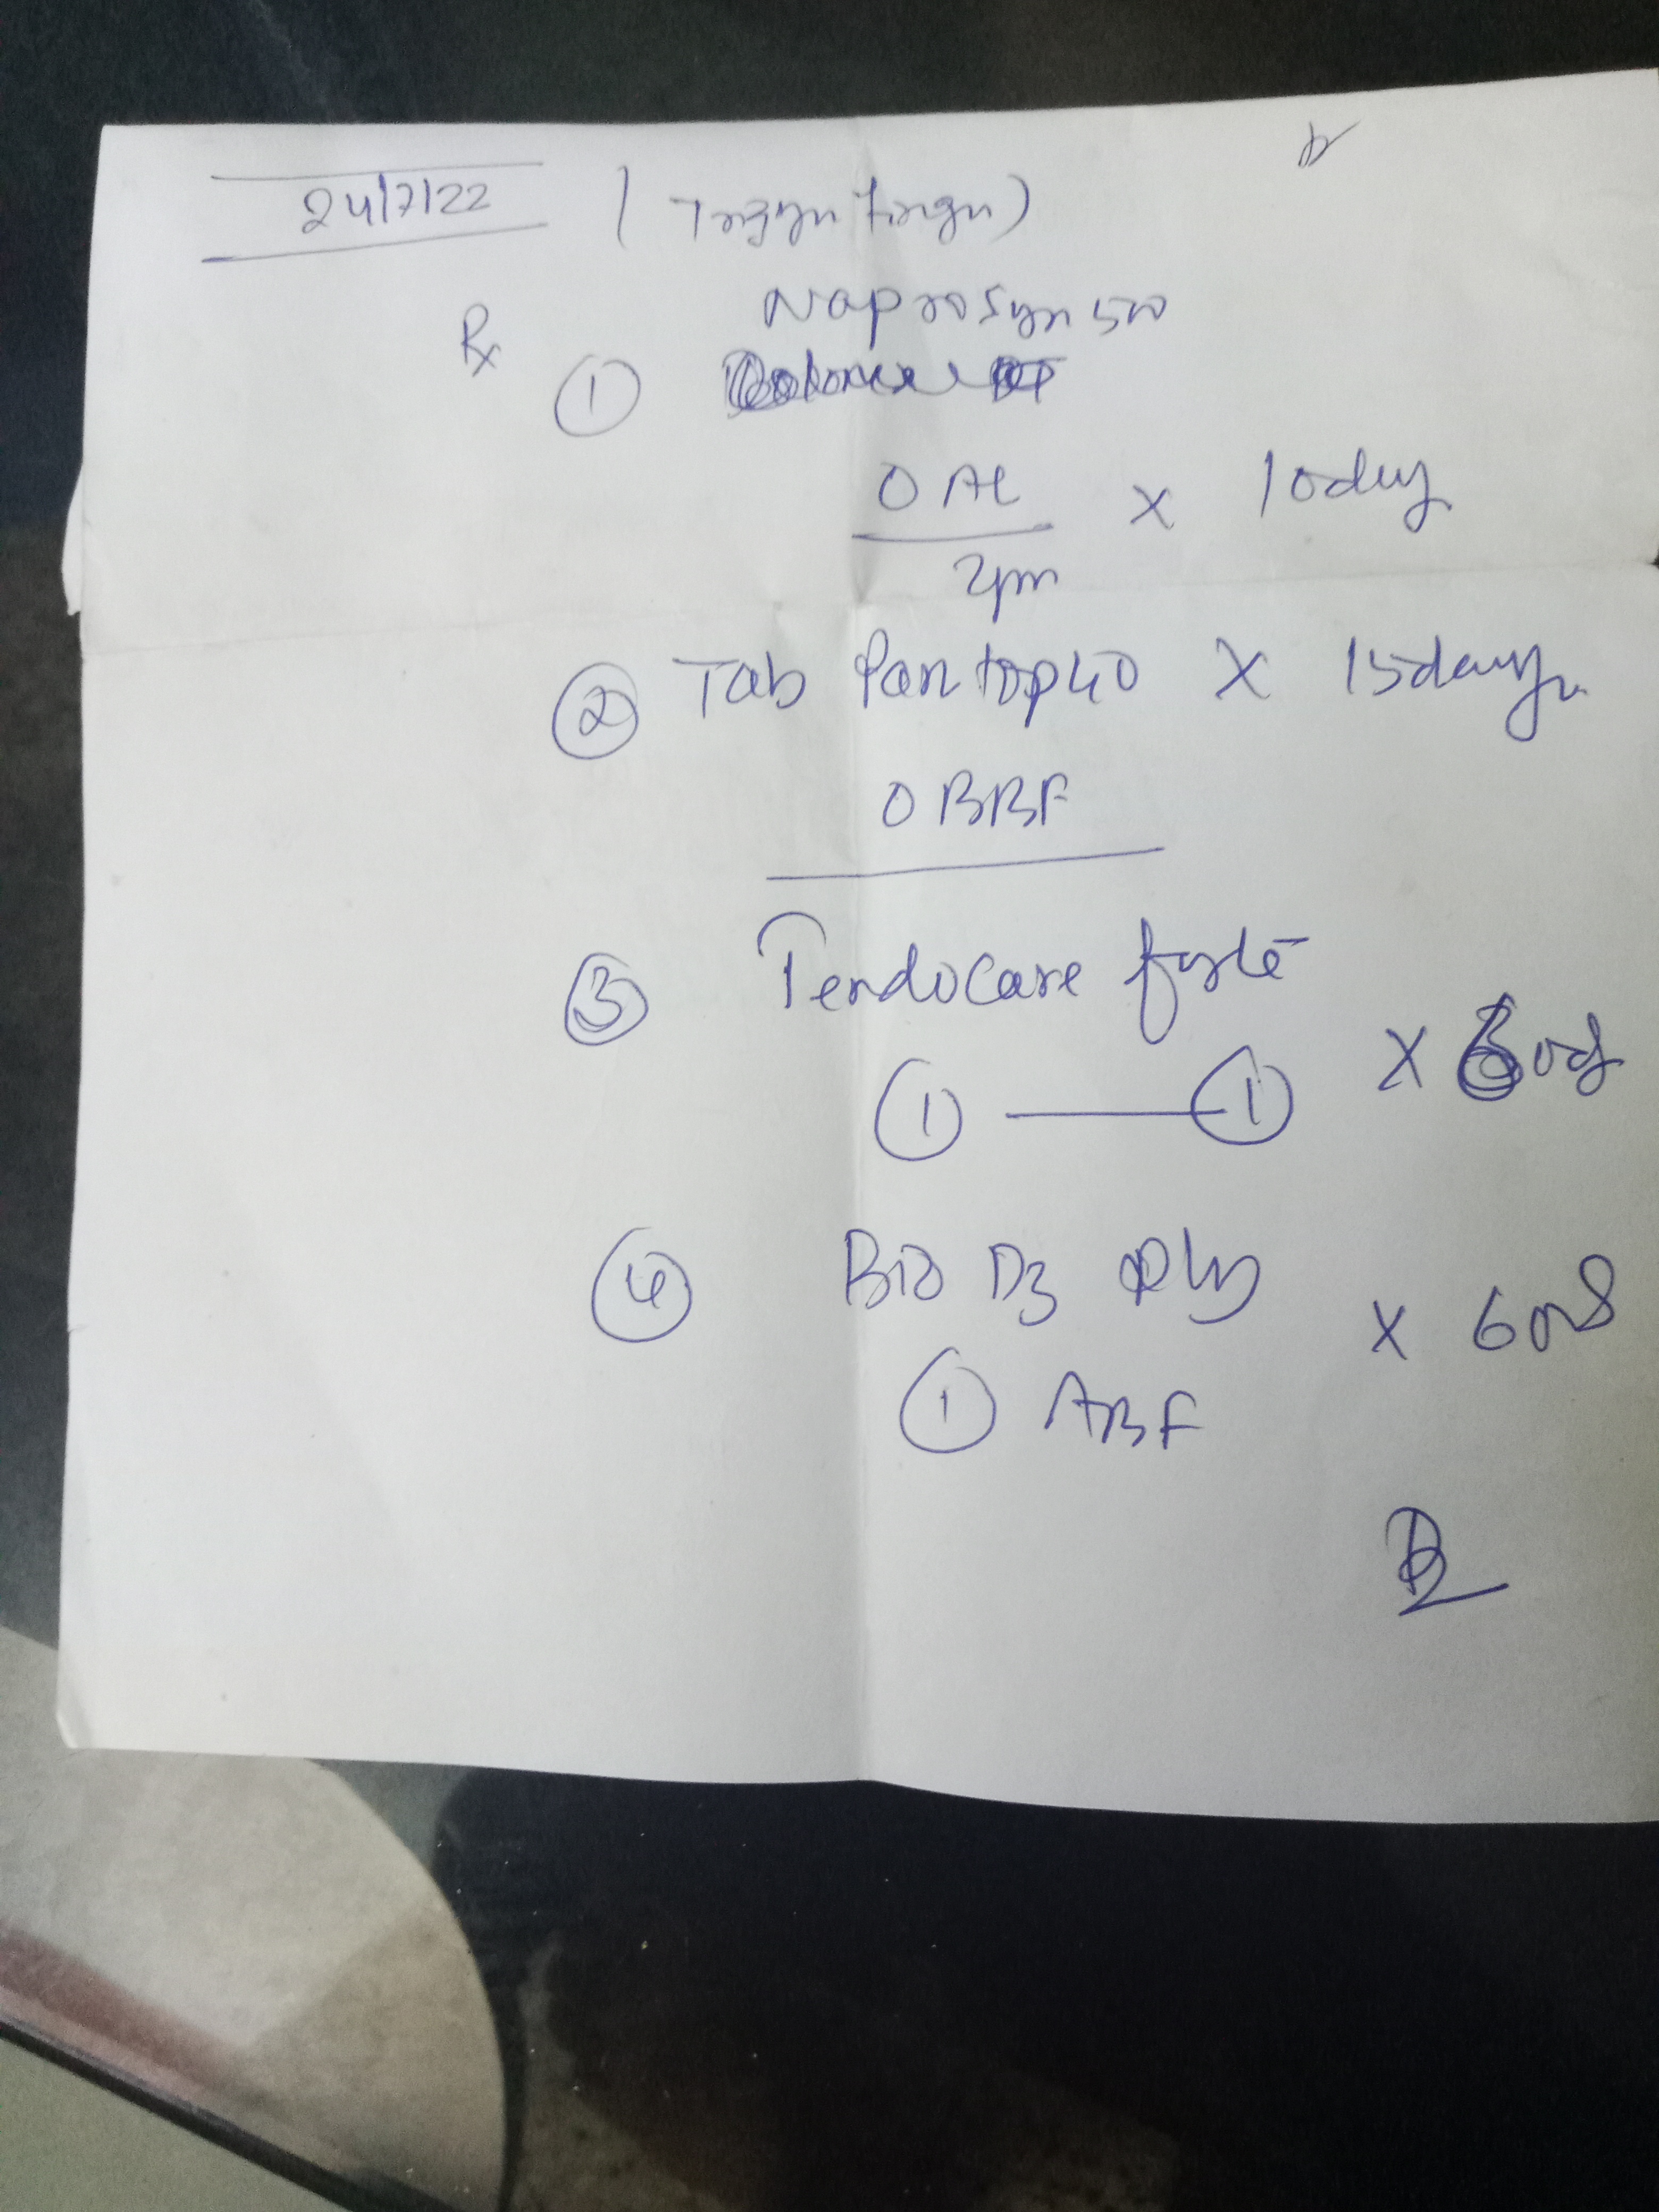 24/7/22 (Trigger finger)
Rx Naprosyn 500
①
0 AL x 10day
2pm
② Tab Pantop 40 X 15days
0 BBF
③ Tendocare forte
① — ① x 60d
④ Bio D3 plus x 60d
① ABF